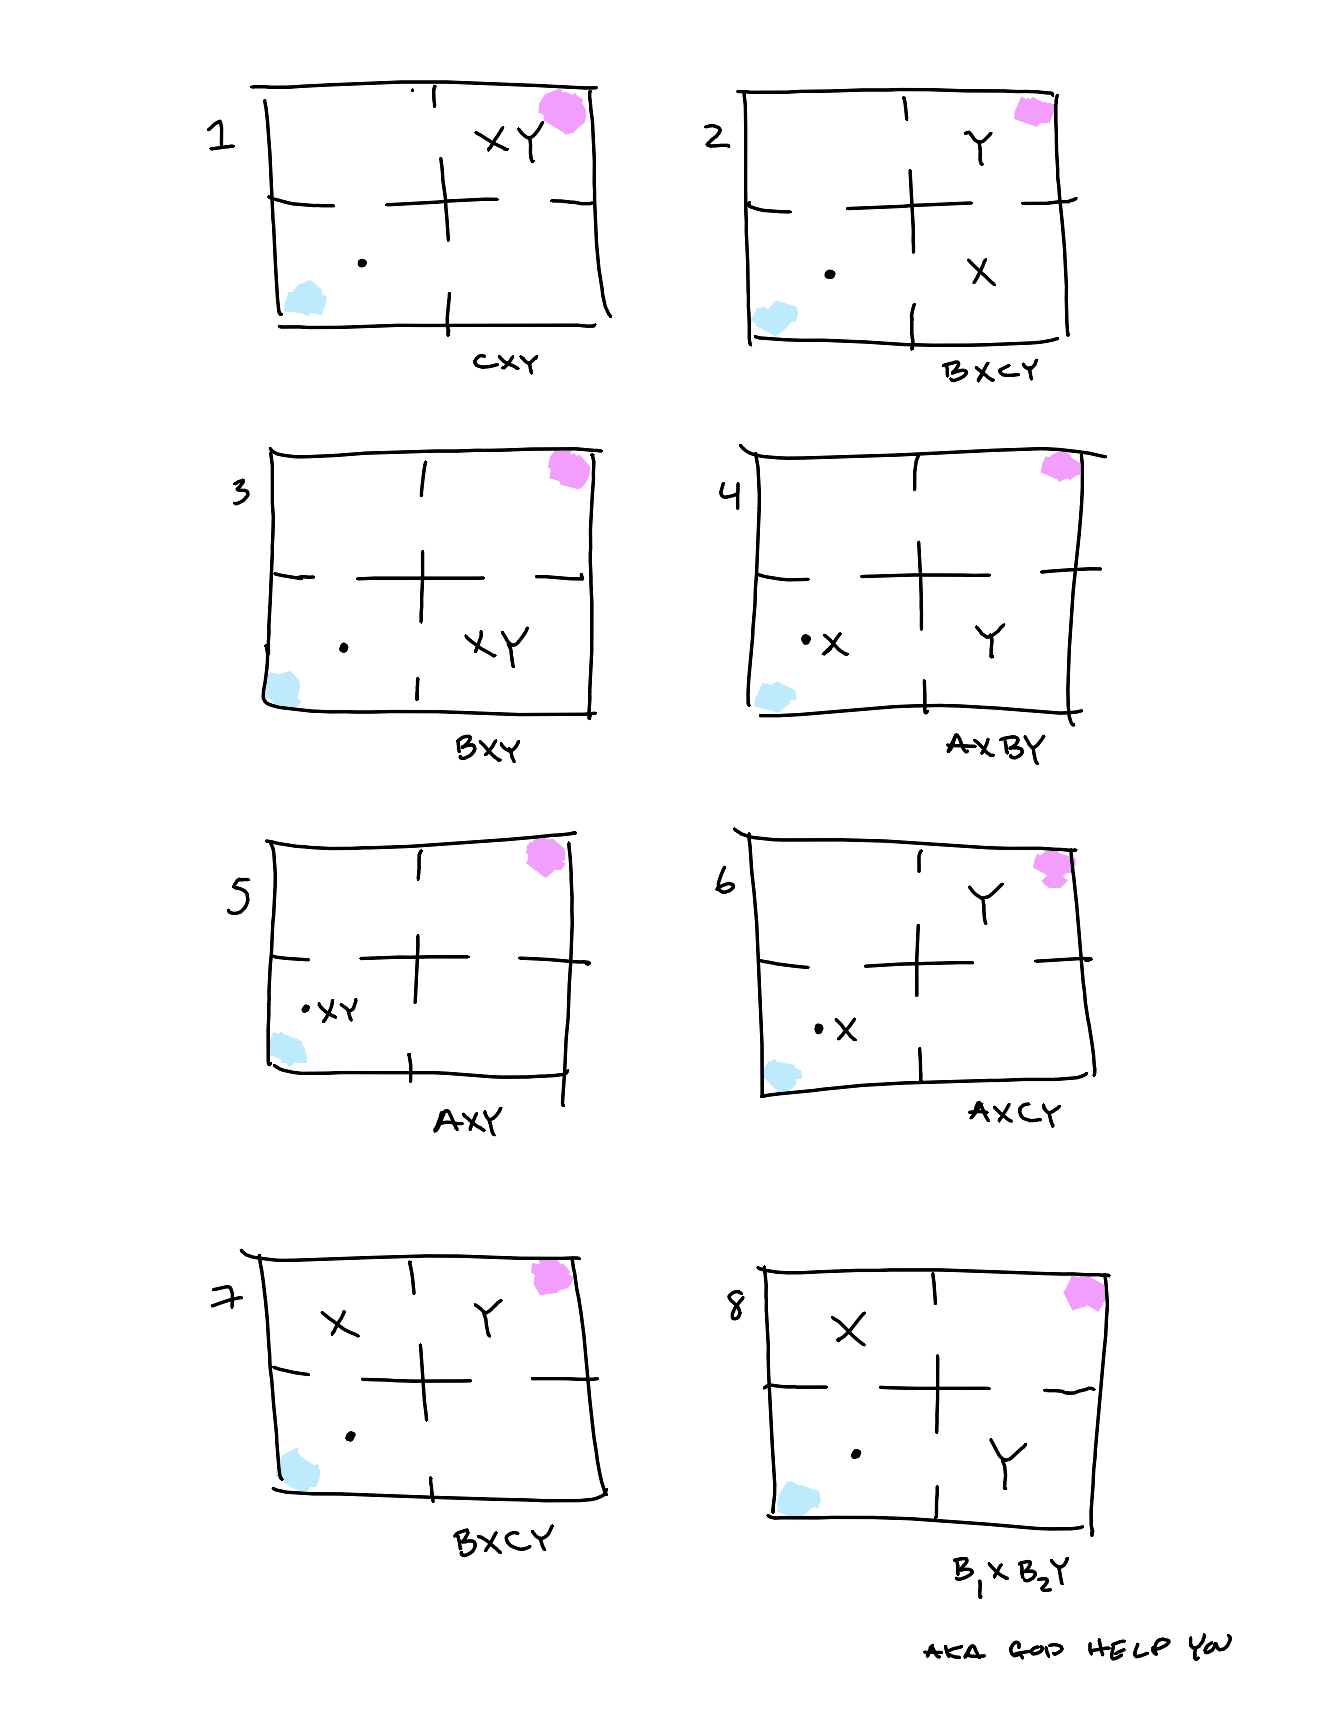 1
XY
CXY
2
Y
X
BXCY
3
XY
BXY
4
X
Y
AXBY
5
XY
AXY
6
Y
X
AXCY
7
X
Y
BXCY
8
X
Y
B₁XB₂Y
AKA GOD HELP YOU